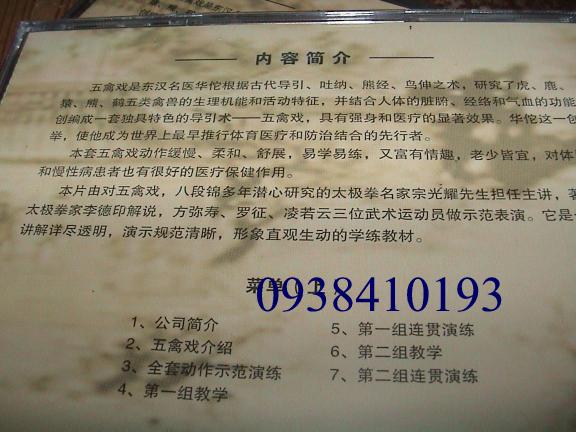 内容简介
五禽戏是东汉名医华佗根据古代导引、吐纳、熊经、鸟伸之术，研究了虎、鹿、
猿、熊、鹤五类禽兽的生理机能和活动特征，并结合人体的脏腑、经络和气血的功能
创编成一套独具特色的导引术——五禽戏，具有强身和医疗的显著效果。华佗这一创
举，使他成为世界上最早推行体育医疗和防治结合的先行者。
本套五禽戏动作缓慢、柔和、舒展，易学易练，又富有情趣，老少皆宜，对体
和慢性病患者也有很好的医疗保健作用。
本片由对五禽戏，八段锦多年潜心研究的太极拳名家宗光耀先生担任主讲，著
太极拳家李德印解说，方弥寿、罗征、凌若云三位武术运动员做示范表演。它是
讲解详尽透明，演示规范清晰，形象直观生动的学练教材。
菜单（上
0938410193
1、公司简介
2、五禽戏介绍
3、全套动作示范演练
4、第一组教学
5、第一组连贯演练
6、第二组教学
7、第二组连贯演练